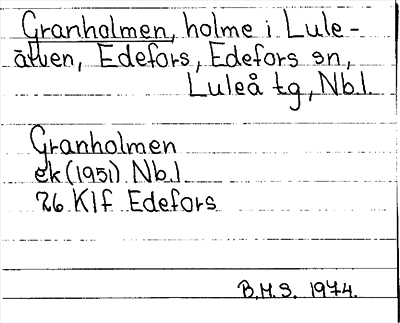 Granholmen, holme i Lule-
älven, Edefors, Edefors sn,
Luleå tg, Nb.l.
Granholmen
ek (1951) Nb.l
26 Klf Edefors
B.M.S. 1974.